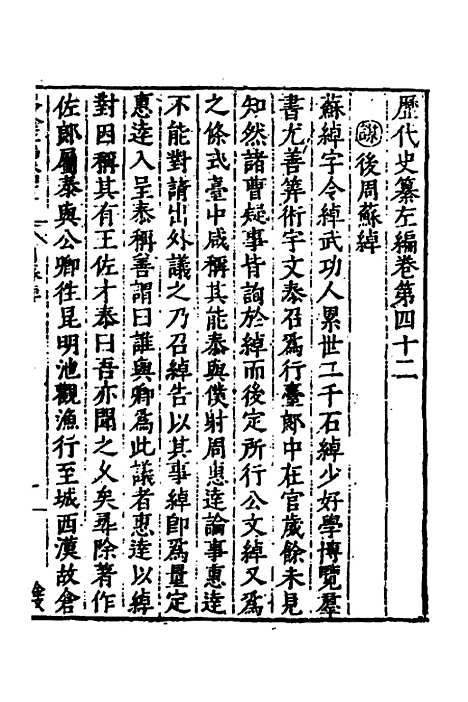 歷代史纂左編卷第四十二
謀後周蘇綽
蘇綽字令綽武功人累世二千石綽少好學博覽羣
書尤善筭術宇文泰召爲行臺郞中在官歲餘未見
知然諸曹疑事皆詢於綽而後定所行公文綽又爲
之條式臺中咸稱其能泰與僕射周惠達論事惠達
不能對請出外議之乃召綽告以其事綽卽爲量定
惠達入呈泰稱善謂曰誰與卿爲此議者惠達以綽
對因稱其有王佐才泰曰吾亦聞之乆矣尋除著作
佐郎屬泰與公卿徃昆明池觀漁行至城西漢故倉